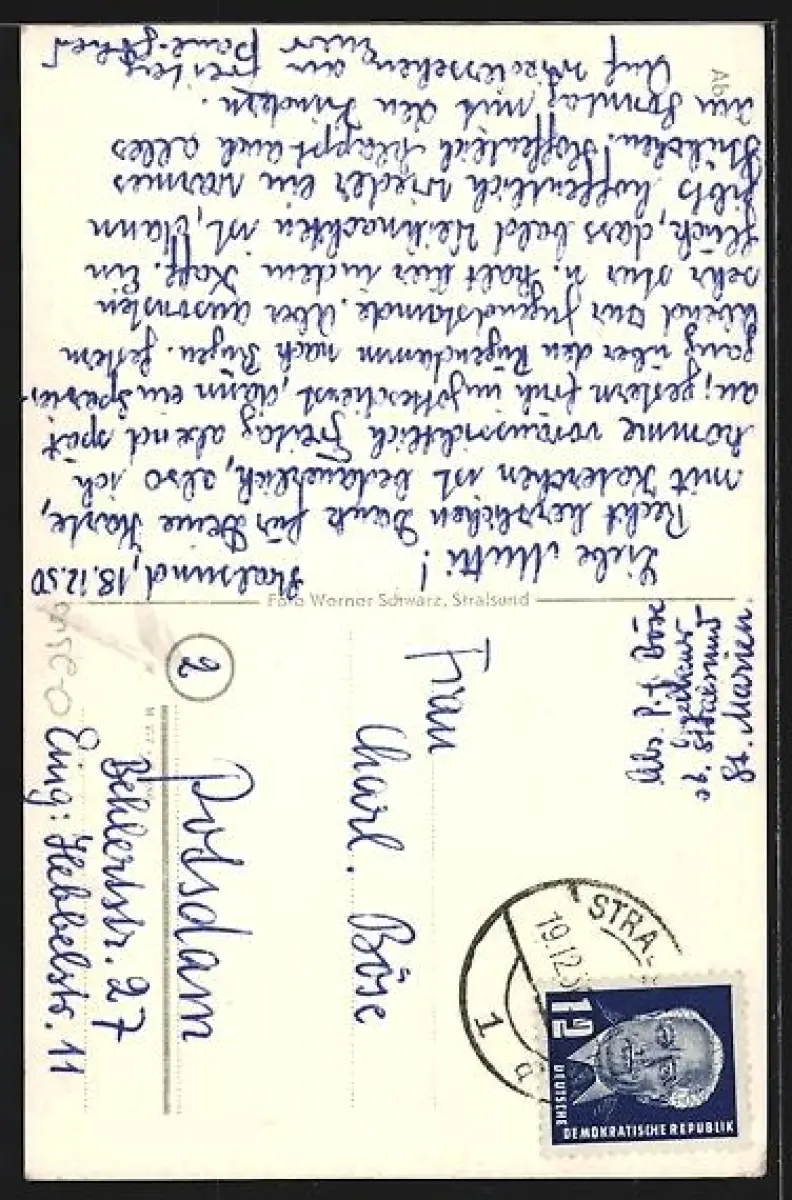 Stralsund, 18.12.50
Liebe Mutti!
Recht herzlichen Dank für Deine Karte,
mit Katerchen ist bedauerlich, also ich
komme voraussichtlich Freitag abend spät
an; gestern früh in Gottesdienst, dann ein Spazier-
gang über den Rügendamm nach Rügen. Gestern
abend zur Jugendstunde. Aber ansonsten
sehr stur u. kalt hier in dem Kaff. Ein
Glück, dass bald Weihnachten ist, dann
gibts hoffentlich wieder ein warmes
Stübchen. Hoffentlich klappt auch alles
am Sonntag mit den Kindern.
Auf Wiedersehen am Freitag
Euer
Foto Werner Schwarz, Stralsund
Abs. P. f. Böse
Stralsund
St. Marien.
Frau
Charl. Böse
2
Potsdam
Behlertstr. 27
Eing: Hebbelstr. 11
STRA
19.12.5
1
a
12
DEUTSCHE
DEMOKRATISCHE REPUBLIK